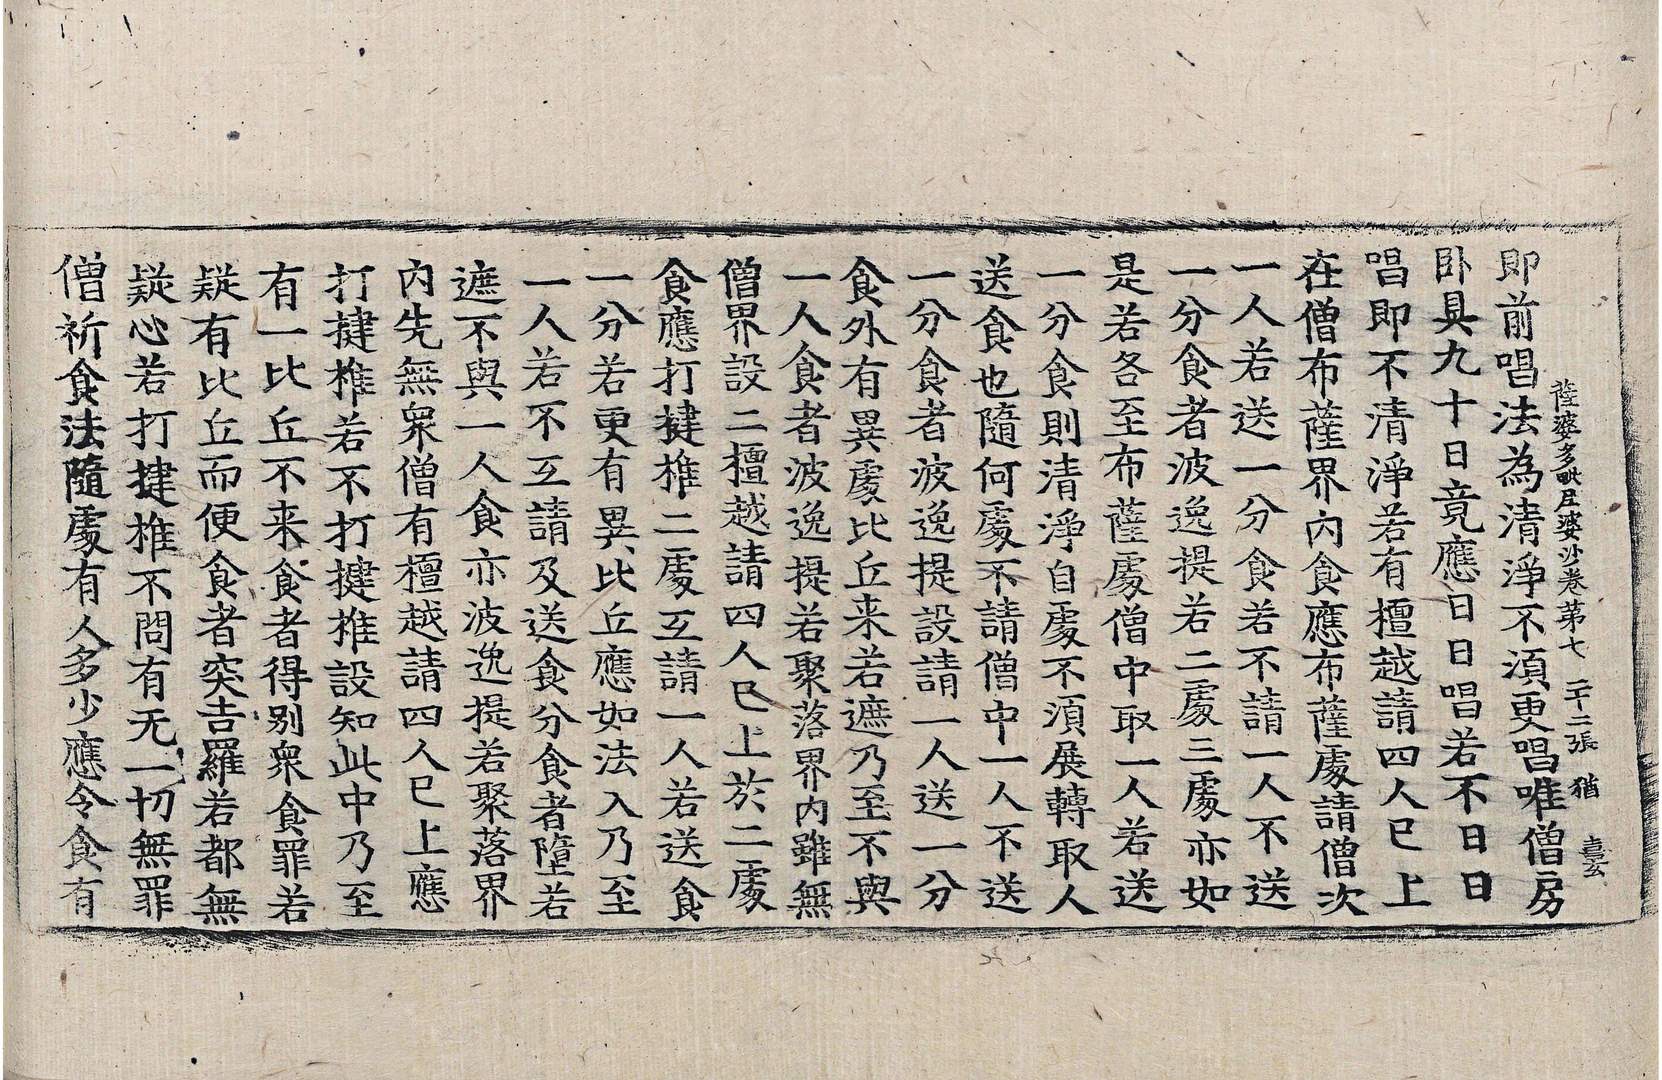 薩婆多毗尼婆沙卷第七 二十二張 猶
即前唱法為清淨不須更唱唯僧房
卧具九十日竟應日日唱若不日日
唱即不清淨若有檀越請四人已上
在僧布薩界內食應布薩處請僧次
一人若送一分食若不請一人不送
一分食者波逸提若二處三處亦如
是若各至布薩處僧中取一人若送
一分食則清淨自處不須展轉取人
送食也隨何處不請僧中一人不送
一分食者波逸提設請一人送一分
食外有異處比丘来若遮乃至不與
一人食者波逸提若聚落界內雖無
僧界設二檀越請四人已上於二處
食應打揵椎二處互請一人若送食
一分若更有異比丘應如法入乃至
一人若不互請及送食分食者墮若
遮不與一人食亦波逸提若聚落界
內先無衆僧有檀越請四人已上應
打揵椎若不打揵椎設知此中乃至
有一比丘不来食者得别衆食罪若
疑有比丘而便食者突吉羅若都無
疑心若打揵椎不問有无一切無罪
僧祈食法隨處有人多少應令食有